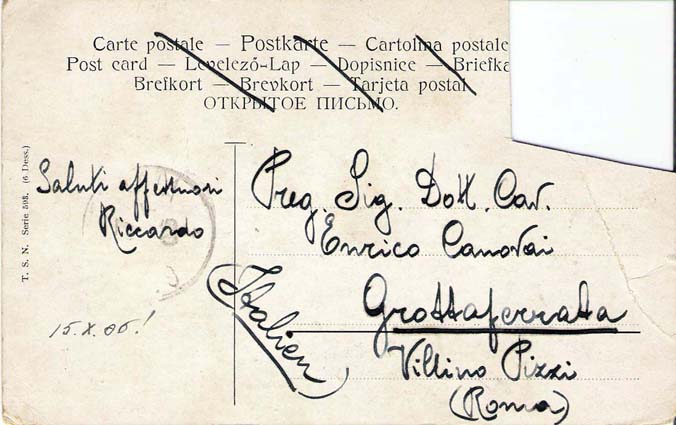 Carte postale — Postkarte — Cartolina postale
Post card — Levelező-Lap — Dopisnice — Briefka
Brefkort — Brevkort — Tarjeta postal
ОТКРЫТОЕ ПИСЬМО.
T. S. N. Serie 508. (6 Dess.)
Saluti affettuosi
Riccardo
15.X.06!
Preg. Sig. Dott. Cav.
Enrico Canovai
Grottaferrata
Villino Pizzi
(Roma)
(Italien)